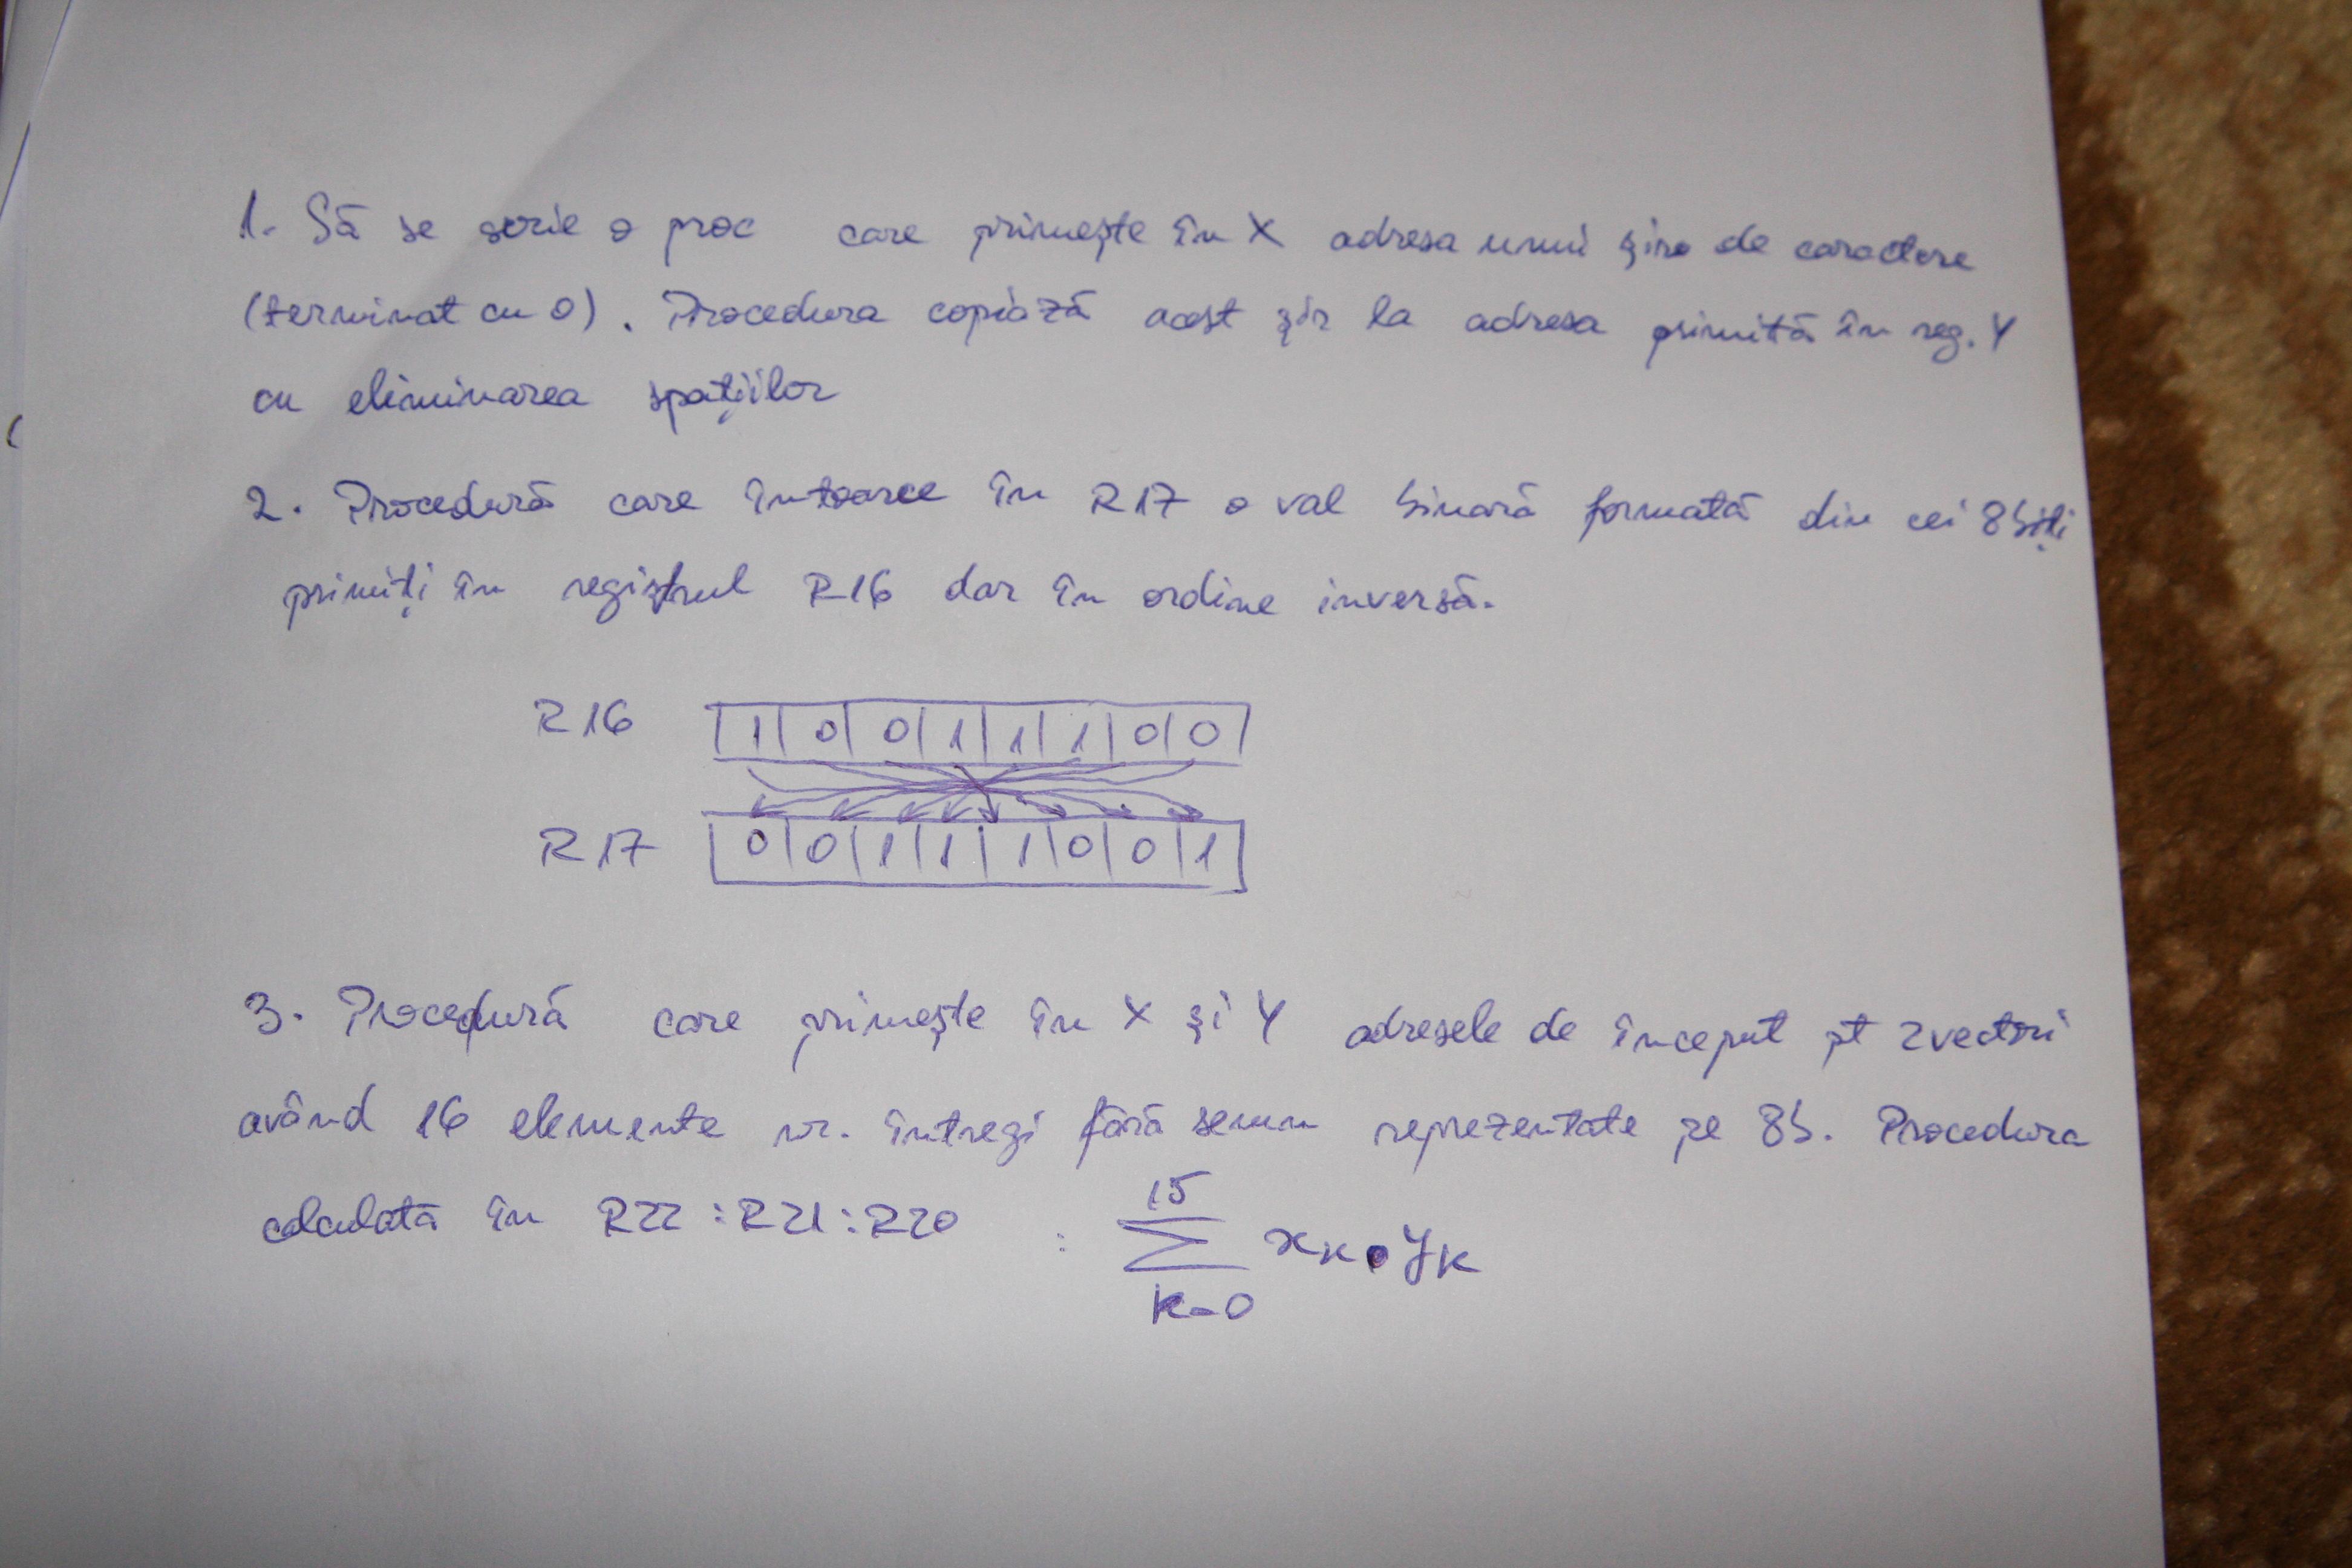 1. Să se scrie o proc care primește în X adresa unui șir de caractere
(terminat cu 0). Procedura copiază acest șir la adresa primită în reg. Y
cu eliminarea spațiilor
2. Procedură care întoarce în R17 o val binară formată din cei 8 biți
primiți în registrul R16 dar în ordine inversă.
R16 1 0 0 1 1 1 0 0
R17 0 0 1 1 1 0 0 1
3. Procedură care primește în X și Y adresele de început pt 2 vectori
având 16 elemente nr. întregi fără semn reprezentate pe 8b. Procedura
calculată în R22:R21:R20 : 15 ∑ k=0 xk·yk